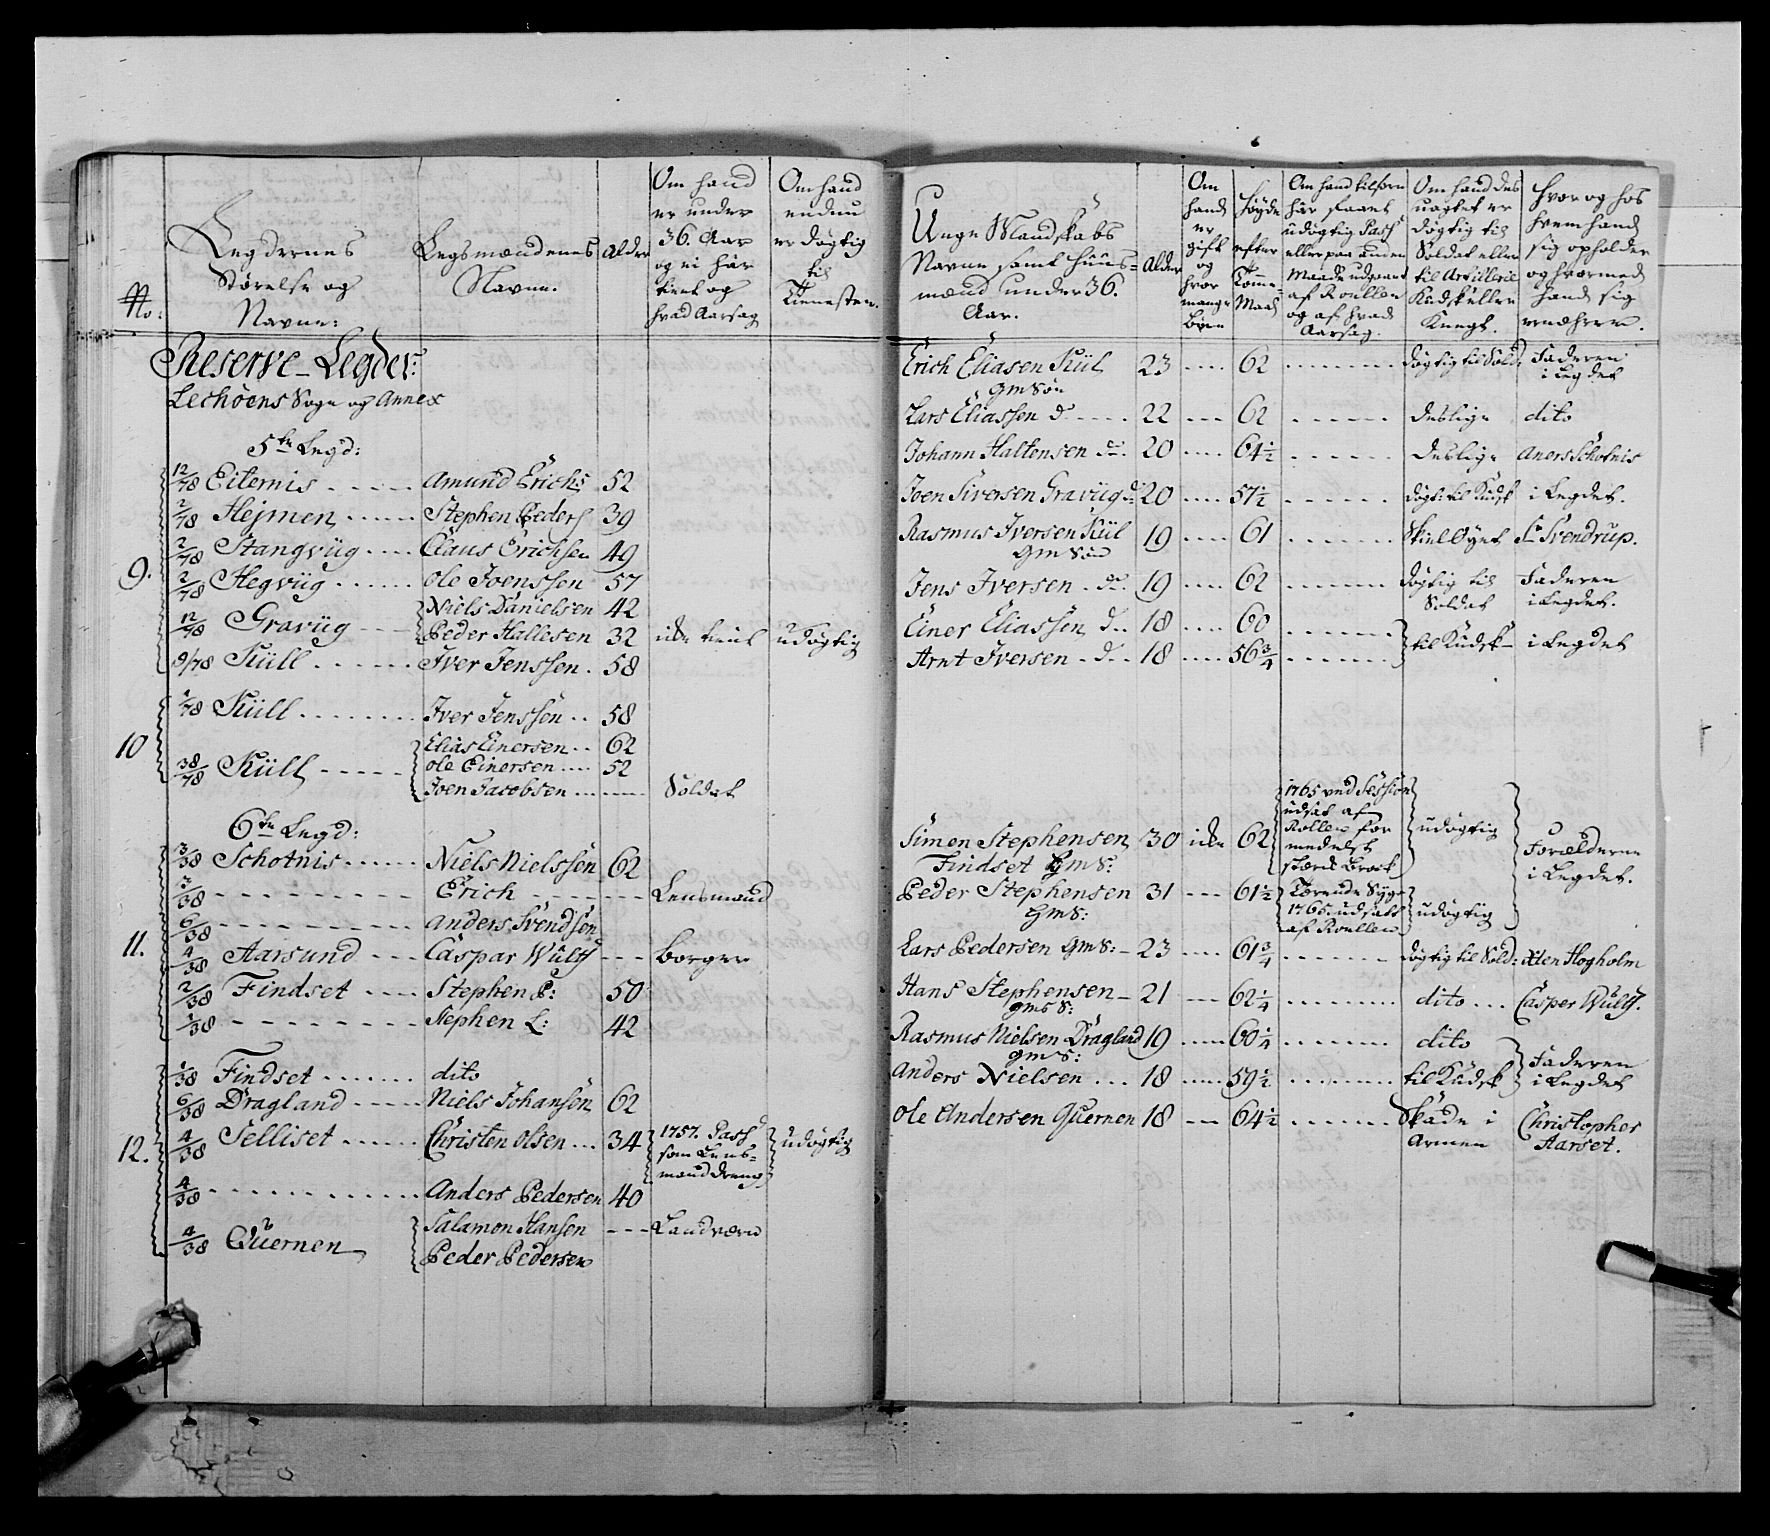 No:
Legdernes
Størelse og
Navne:
Legsmændenes
Navne.
Alder
Om hand
er under
36. Aar
og ei har
tient og
hvad Aarsag
Om hand
endnu
er døgtig
til
Tienesten.
Reserve-Legder:
Lechöens Sogn og Annex
5te Legd:
9.
12/78 Eiternis ..... Amund Erichs 52
2/78 Hejmen ...... Stephen Peders 39
2/78 Stangvüg .... Claus Erichsen 49
2/78 Hegvüg ...... Ole Joenssen 57
12/78 Gravüg ... Niels Danielsen 42
Peder Hallesen 32 ikke tient udøgtig
9/78 Küll ...... Iver Jenssen . 58
10
1/78 Küll ........ Iver Jenssen .. 58
38/78 Küll ..... Elias Einersen .. 62
Ole Einersen .... 52
Joen Jacobsen ... ---- Soldat
6te Legd:
11.
3/38 Schotnis ...... Niels Nielssen 62
3/38 --------- Erich ------ Lensmand
6/38 --------- Anders Svendsen
4/38 Aarsund --- Casper Wulff --- Borger
2/38 Findset .... Stephen P: 50
1/38 --------- Stephen L: 42
12.
1/38 Findset ....... dito
6/38 Dragland ..... Niels Johansen 62
4/38 Selliset ...... Christen Olsen ... 34 1757. Pass
som Lens-
mand dreng
udøgtig
4/38 ............ Anders Pedersen 40
4/38 Quernen Salamon Hansen --- Landværn
Peder Pedersen
Unge Mandskabs
Navne samt Huus-
mænd under 36.
Aar.
Alder
Om
hand
er
gift
og
hvor
mange
Børn
Høyde
efter
Tomme-
Maal
Om hand tilforn
har faaet
udøgtig Pass
eller paa anden
Maade udgaaet
af Roullen
og af hvad
Aarsag.
Om hand des
uagtet er
døgtig til
Soldat eller
til Artillerie
Kudsk eller
Knegt.
Hvor og hos
hvem hand
sig opholder
og hvormed
hand sig
ernærer.
Erich Eliasen Kül 23 .... 62 ........ døgtig til Sold Faderen
Gm Søn i Legdet
Lars Eliassen do .... 22 --- 62 ------ deslige dito
Johann Haltensen do. 20 .... 64½ ------ deslige Aners Schotnis
Joen Siversen Gravüg do 20 .... 57½ ------ døgt: til Kudsk i Legdet.
Rasmus Iversen Kül 19 .... 61 ....... Skiel Øyet Hr Svendrup.
Gm Søn
Jens Iversen . do. 19 .... 62 ...... døgtig til Faderen
Soldat i Legdet.
Einer Eliassen do.. 18 .... 60 .......
Arnt Iversen . do.. 18 .... 56¾ ...... til Kudsk - i Legdet
Simen Stephensen 30 ikke 62 1765 ved Session
udsat af
Rollen for
medelst
stærk Brock
udøgtig
Findset Gm S:
Forælderne
i Legdet.
Peder Stephensen 31 --- 61½ Tærende Syge
1765. udsatt
af Roullen
udøgtig
Gm S:
Lars Pedersen Gm S: - 23 .... 61¾ ....... døgtig til Sold: Xten Hogholm
Hans Stephensen - 21 --- 62¼ ........ dito ... Casper Wulff.
Gm S:
Rasmus Nielsen Dragland 19 .... 60¼ ........ dito
Gm S: Faderen
i Legdet
Anders Nielsen ... 18 .... 59½ ........ til Kudsk
Ole Andersen Quernen 18 --- 64½ ...... Skade i Christopher
Armen Aarset.